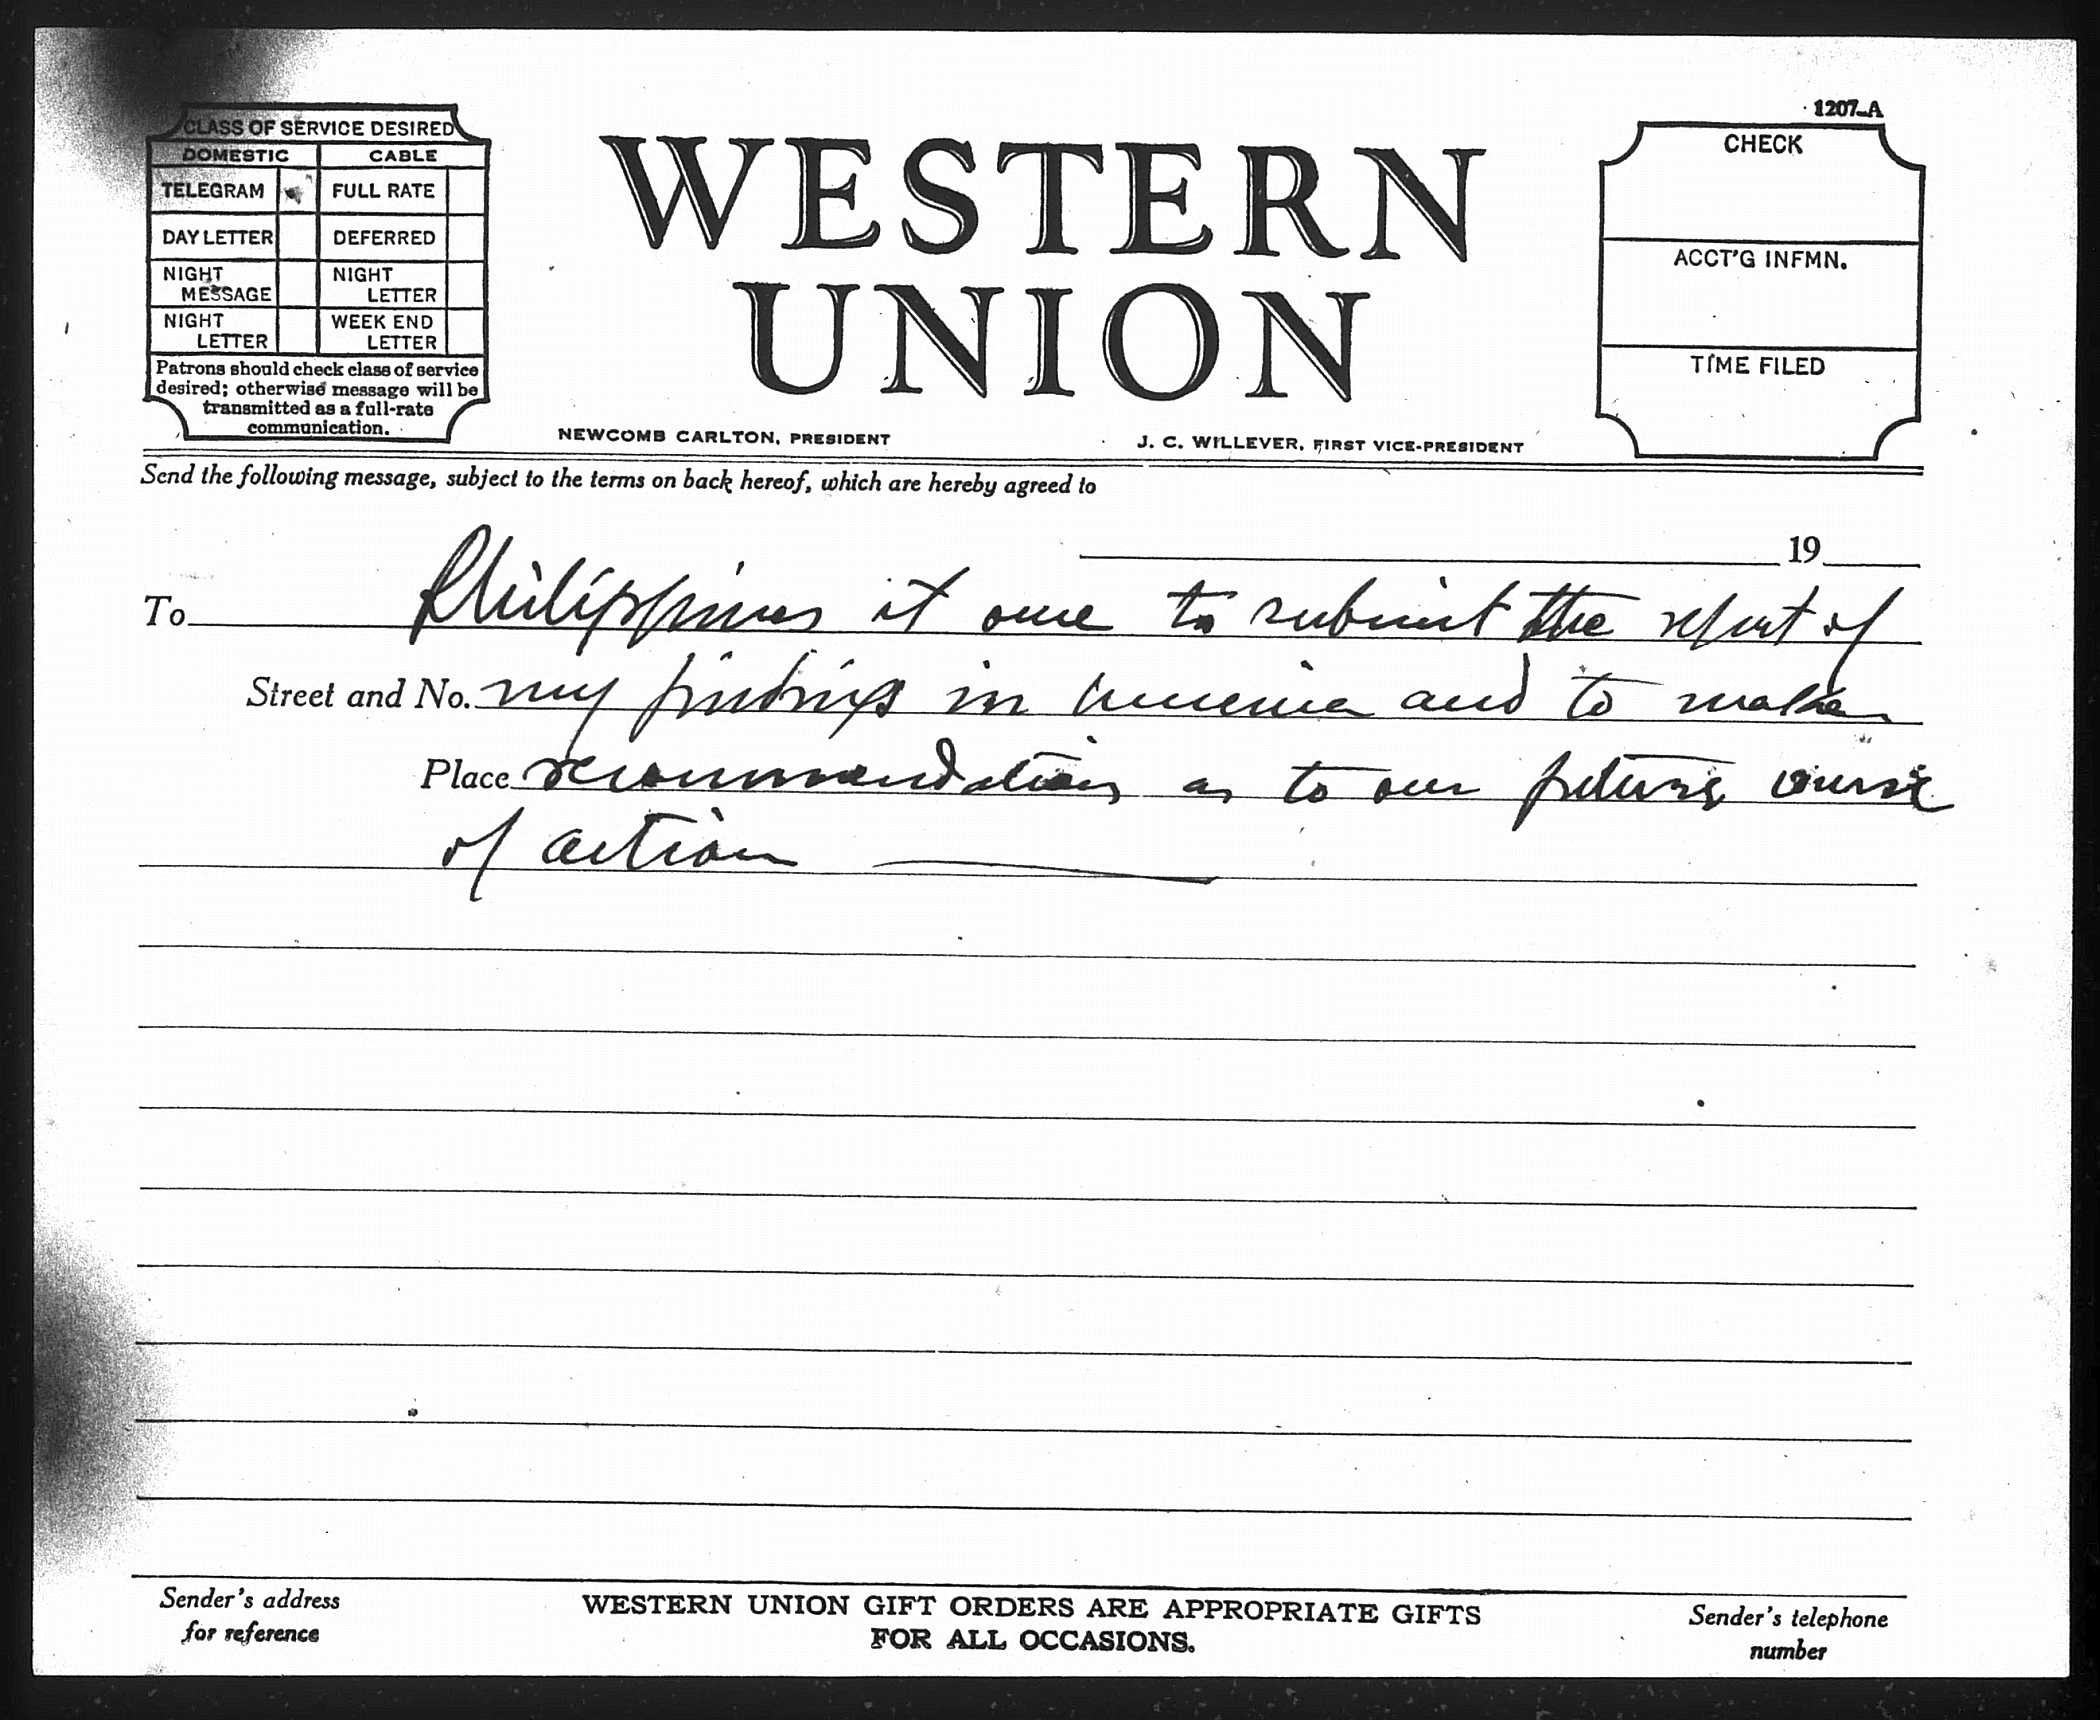 1207-A
CLASS OF SERVICE DESIRED
DOMESTIC CABLE
TELEGRAM FULL RATE
DAY LETTER DEFERRED
NIGHT MESSAGE NIGHT LETTER
NIGHT LETTER WEEK END LETTER
Patrons should check class of service
desired; otherwise message will be
transmitted as a full-rate
communication.
WESTERN
UNION
NEWCOMB CARLTON, PRESIDENT J. C. WILLEVER, FIRST VICE-PRESIDENT
CHECK
ACCT'G INFMN.
TIME FILED
Send the following message, subject to the terms on back hereof, which are hereby agreed to
19
To Philippines at once to submit the report of
Street and No. my findings in America and to make
Place recommendations as to our future course
of action
Sender's address
for reference
WESTERN UNION GIFT ORDERS ARE APPROPRIATE GIFTS
FOR ALL OCCASIONS.
Sender's telephone
number